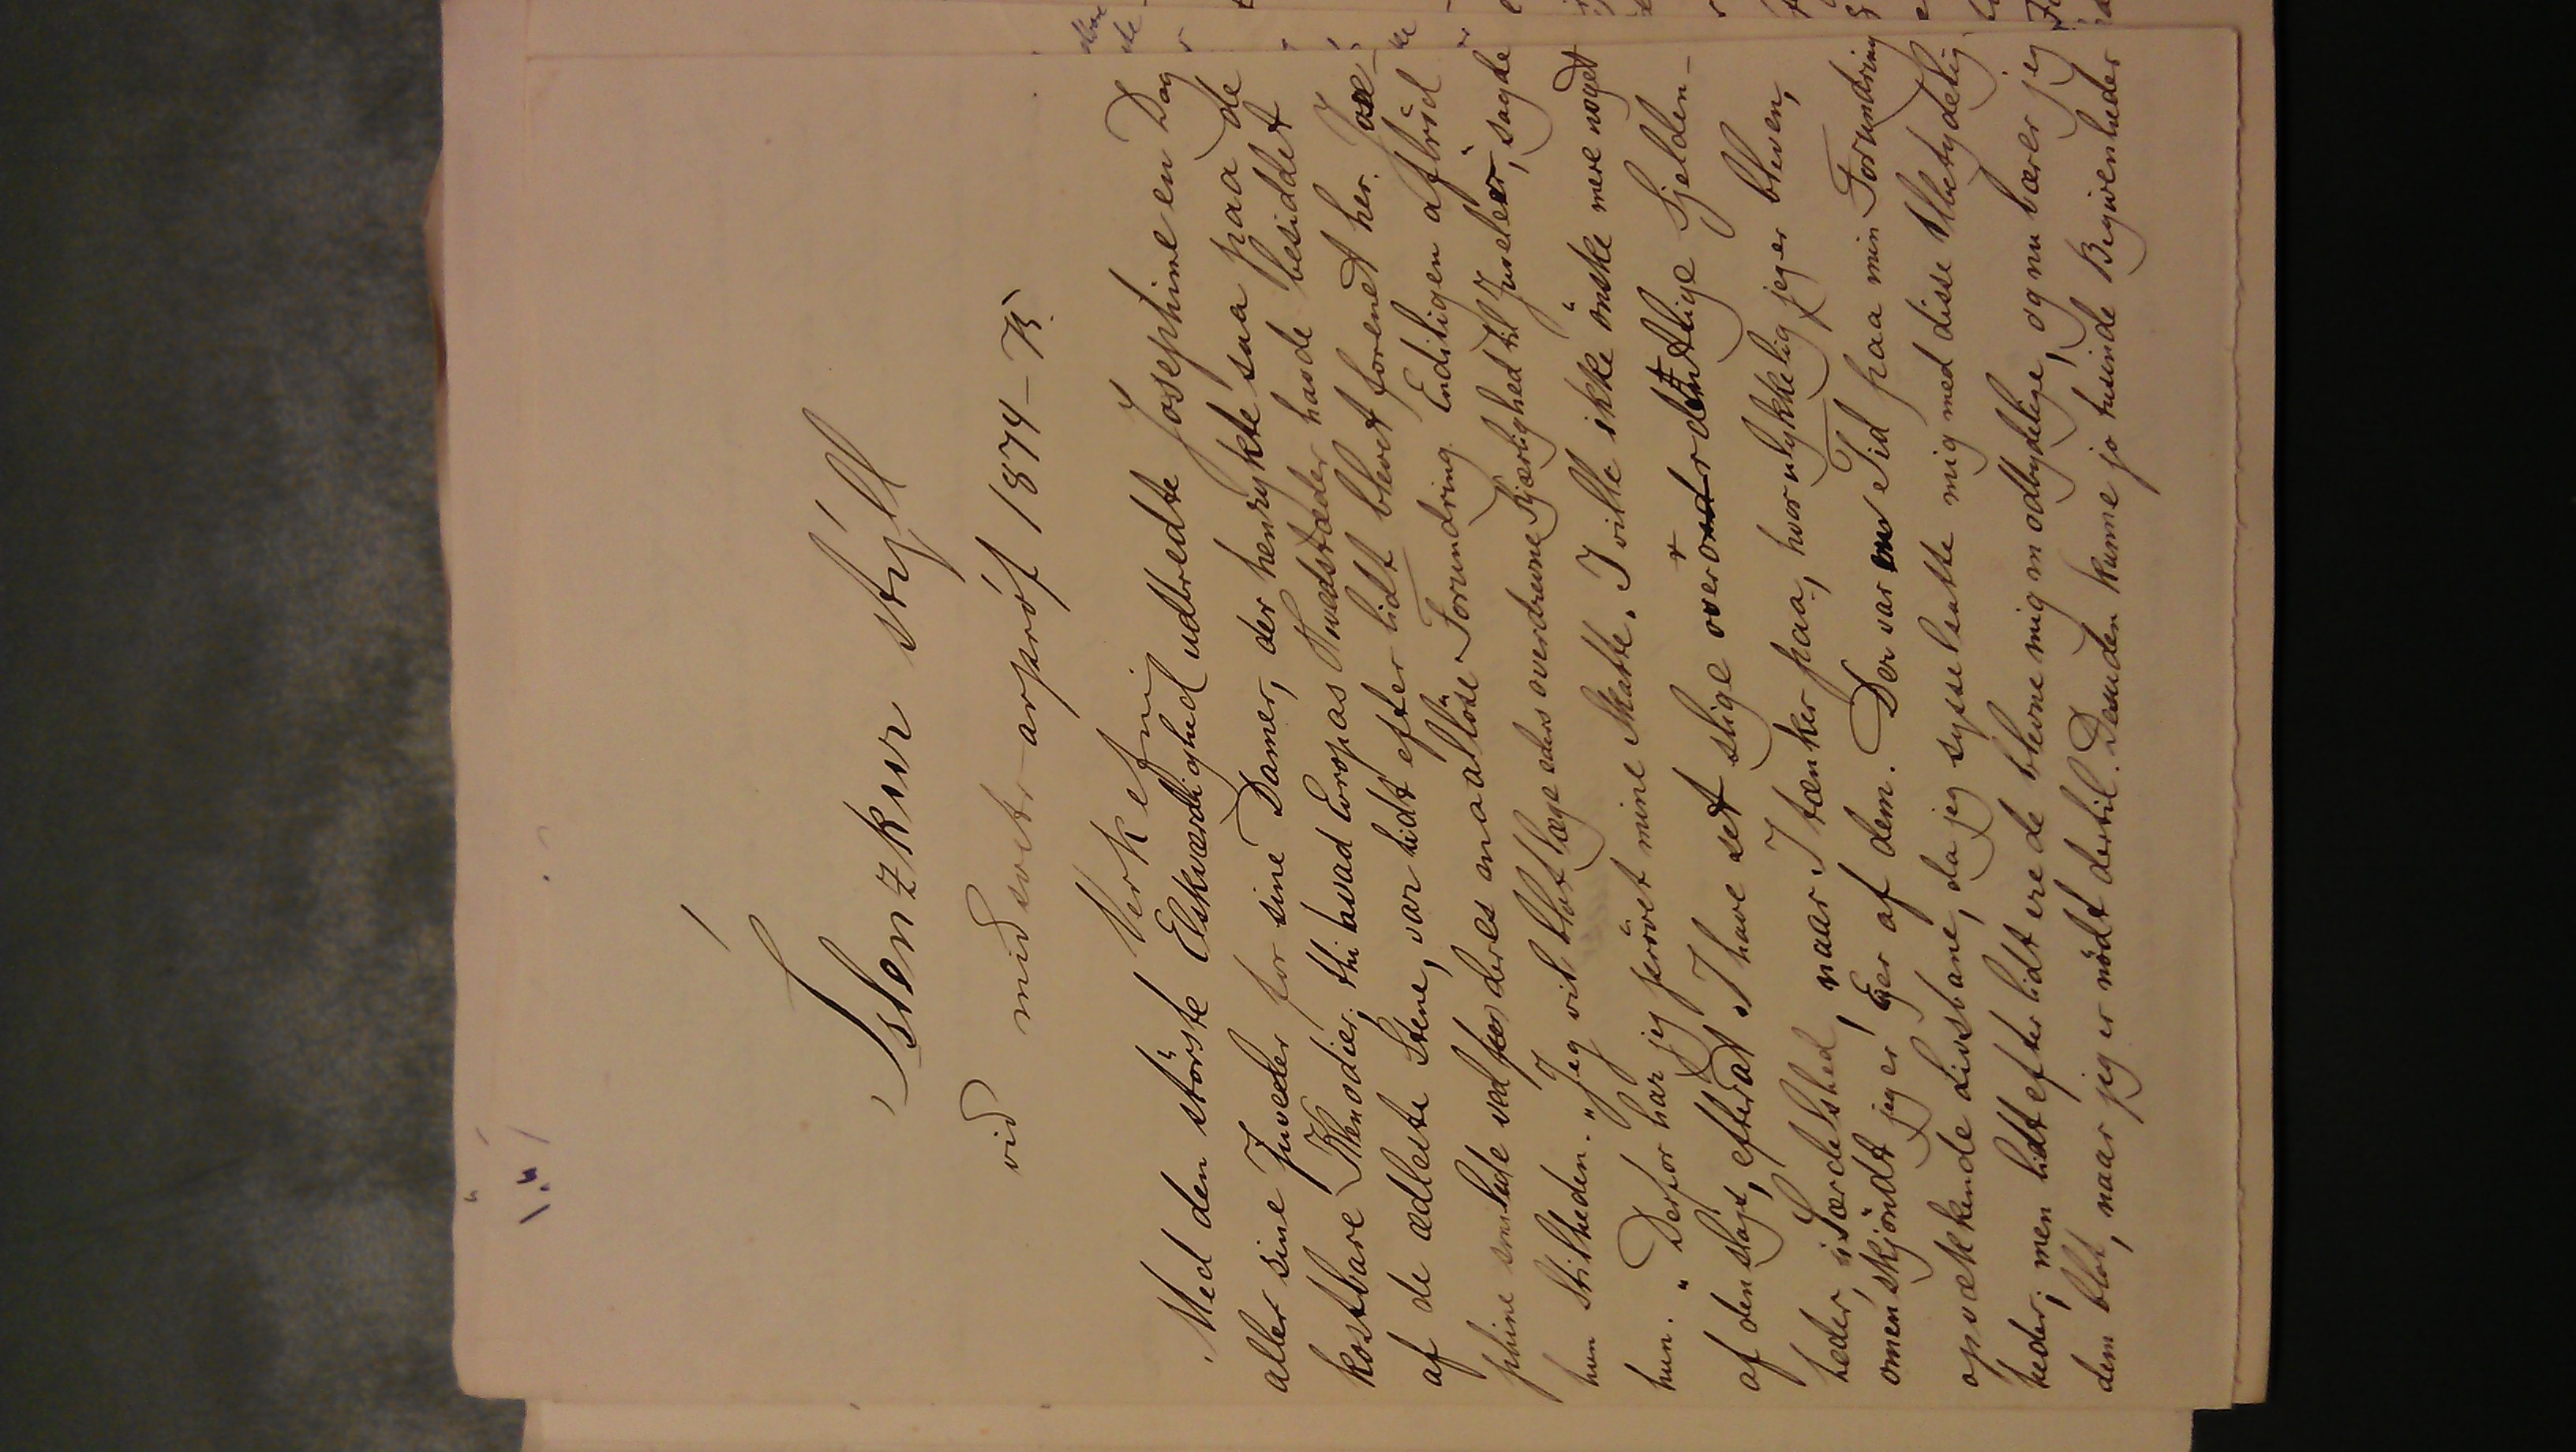 Íslenzkur stýll
við miðsvetrarpróf 1874–75.
Verkefni
Med den störste Elskværdighed udbredte Josephine en Dag
aller sine Juveler for sine Damer, der henrykte saa paa de
kostbare Klenodier; thi hvad Europas Hovedstæder havde besiddet
af de ædleste Stene, var lidt efter lidt blevet forenet her. Jose-
phine smilede ved deres maallöse Forundring. Endeligen afbröd
hun Stilheden. "Jeg vil blot læge eders overdrevne Kjærlighed til Juveler", sagde
hun. "Derfor har jeg prövet mine Skatte. I ville ikke önske mere noget
af den slags, efterat I have set slige overordentlige Sjelden-
heder, i Særdeleshed, naar I tænker paa, hvor ulykkelig jeg er bleven,
omenskjöndt jeg er Ejer af dem. Der var en Tid paa min Forundring
opvækkende Livsbane, da jeg sysselsatte mig med disse Ubetydelig-
heder; men lidt efter lidt ere de blevne mig modbydelige, og nu bærer jeg
dem blot, naar jeg er nödt dertil. Desuden kunne jo tusinde Begivenheder